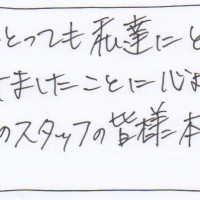 とっても私達にと
きましたことに心よ
のスタッフの皆様本